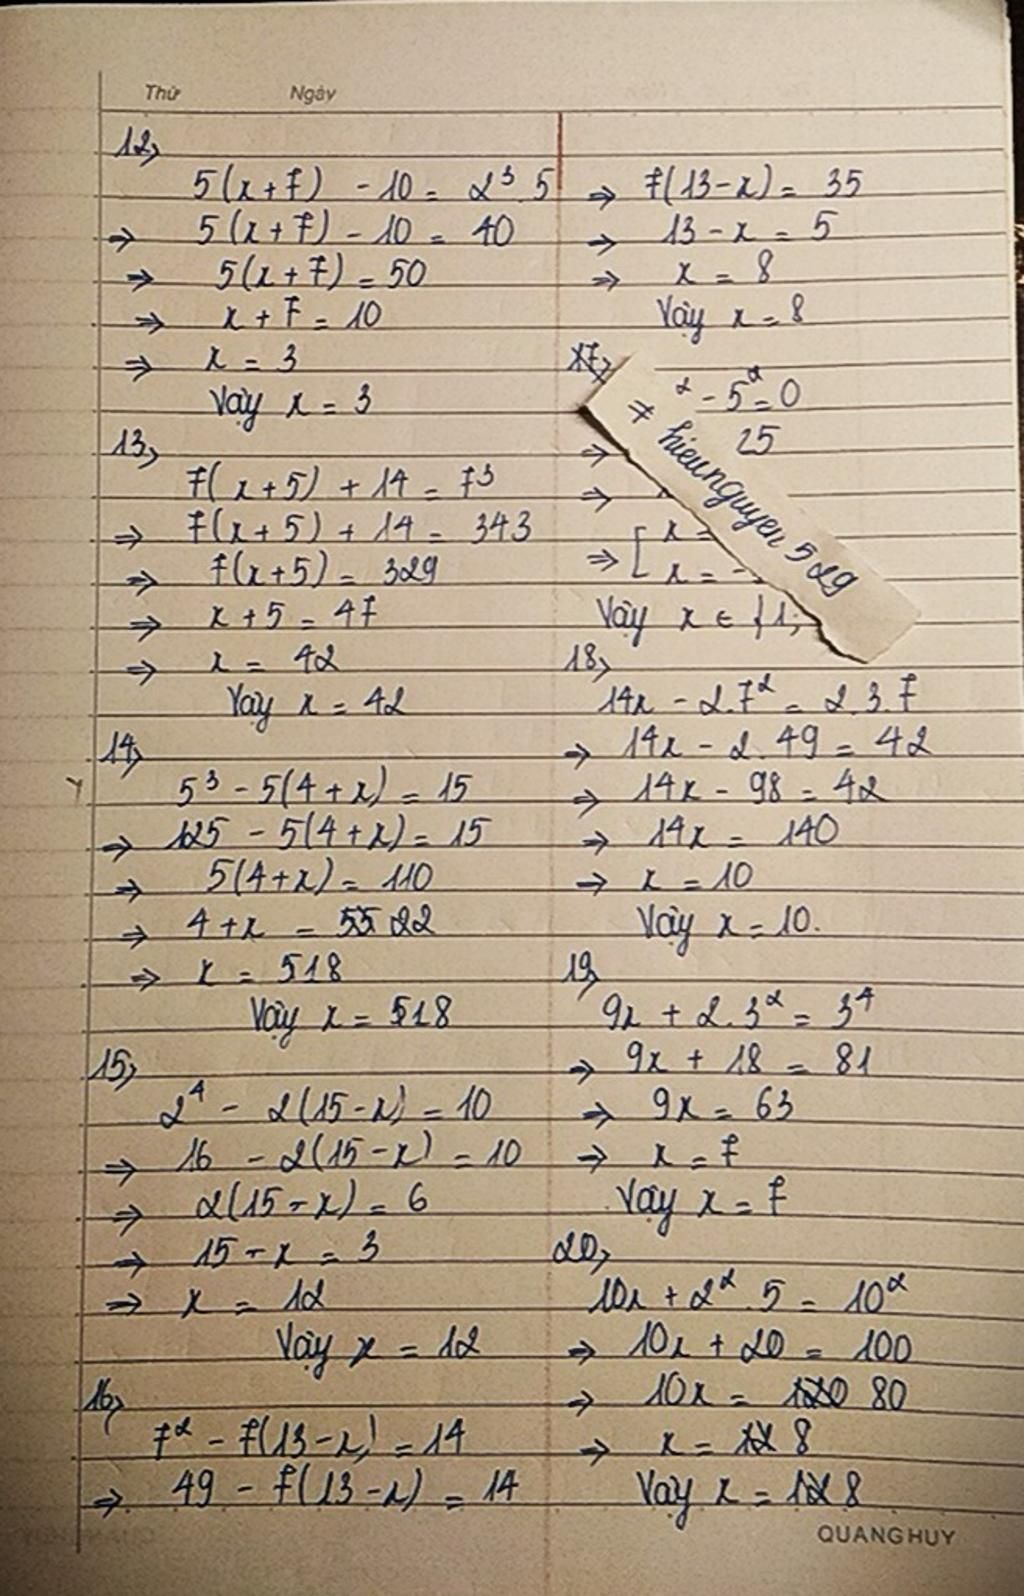 Thứ Ngày
12,
5(x+7) - 10 = 2³.5
⇒ 5(x+7) - 10 = 40
⇒ 5(x+7) = 50
⇒ x + 7 = 10
⇒ x = 3
Vậy x = 3
13,
7(x+5) + 14 = 7³
⇒ 7(x+5) + 14 = 343
⇒ 7(x+5) = 329
⇒ x + 5 = 47
⇒ x = 42
Vậy x = 42
14,
5³ - 5(4+x) = 15
⇒ 125 - 5(4+x) = 15
⇒ 5(4+x) = 110
⇒ 4+x = 22
⇒ x = 18
Vậy x = 18
15,
2⁴ - 2(15-x) = 10
⇒ 16 - 2(15-x) = 10
⇒ 2(15-x) = 6
⇒ 15-x = 3
⇒ x = 12
Vậy x = 12
16,
7² - 7(13-x) = 14
⇒ 49 - 7(13-x) = 14
⇒ 7(13-x) = 35
⇒ 13-x = 5
⇒ x = 8
Vậy x = 8
17,
² - 5² = 0
⇒ 25
⇒
⇒ [ x =
x = -
Vậy x ∈ {1;
≠ hieunguyen529
18,
14x - 2.7² = 2.3.7
⇒ 14x - 2.49 = 42
⇒ 14x - 98 = 42
⇒ 14x = 140
⇒ x = 10
Vậy x = 10.
19,
9x + 2.3² = 3⁴
⇒ 9x + 18 = 81
⇒ 9x = 63
⇒ x = 7
Vậy x = 7
20,
10x + 2².5 = 10²
⇒ 10x + 20 = 100
⇒ 10x = 80
⇒ x = 8
Vậy x = 8
QUANG HUY